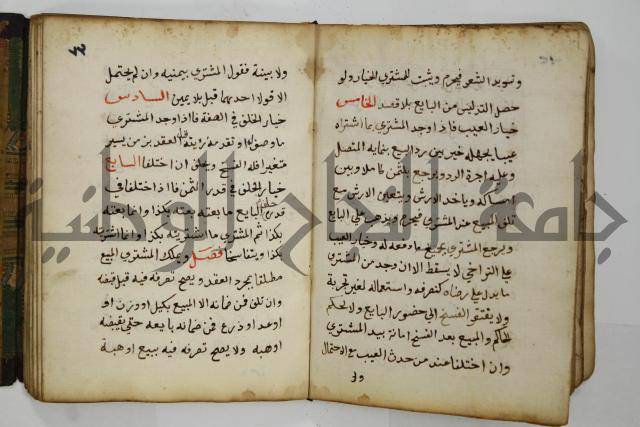 وتسويد الشعر فيحرم ويثبت للمشتري الخيار ولو
حصل التدليس من البايع بلا قصد الخامس
خيار العيب فاذا وجد المشتري بما اشتراه
عيبا يجهله خير بين رد المبيع بنمايه المتصل
وعليه اجرة الرد ويرجع بالثمن كاملا وبين
امساكه وياخذ الارش ويتعين الارش مع
تلف المبيع عند المشتري فيحرم ويذهب على البايع
ويرجع المشتري بجميع ما دفعه له وخيار العيب
على التراخي لا يسقط الا ان وجد من المشتري
ما يدل على رضاه كتصرفه واستعماله لغير تجربة
ولا يفتقر الفسخ الى حضور البايع ولا لحكم
الحاكم والمبيع بعد الفسخ امانة بيد المشتري
وان اختلفا عند من حدث العيب مع الاحتمال
ولا
ولا بينة فقول المشتري بيمينه وان لم يحتمل
الا قول احدهما قبل بلا يمين السادس
خيار الخلف في الصفة فاذا وجد المشتري
ما وصف او تقدمت رؤيته قبل العقد بزمن يسير
متغيرا فله الفسخ ويحلف ان اختلفا السابع
خيار الخلف في قدر الثمن فاذا اختلفا في
قدره حلف البايع ما بعته بكذا وانما بعته
بكذا ثم المشتري ما اشتريته بكذا وانما اشتريته
بكذا ويتفاسخا فصل ويملك المشتري المبيع
مطلقا بمجرد العقد ويصح تصرفه فيه قبل قبضه
وان تلف فمن ضمانه الا المبيع بكيل او وزن او
او عد او ذرع فمن ضمان بايعه حتى يقبضه
ولا يصح تصرفه فيه ببيع او هبة
جامعة النجاح الوطنية